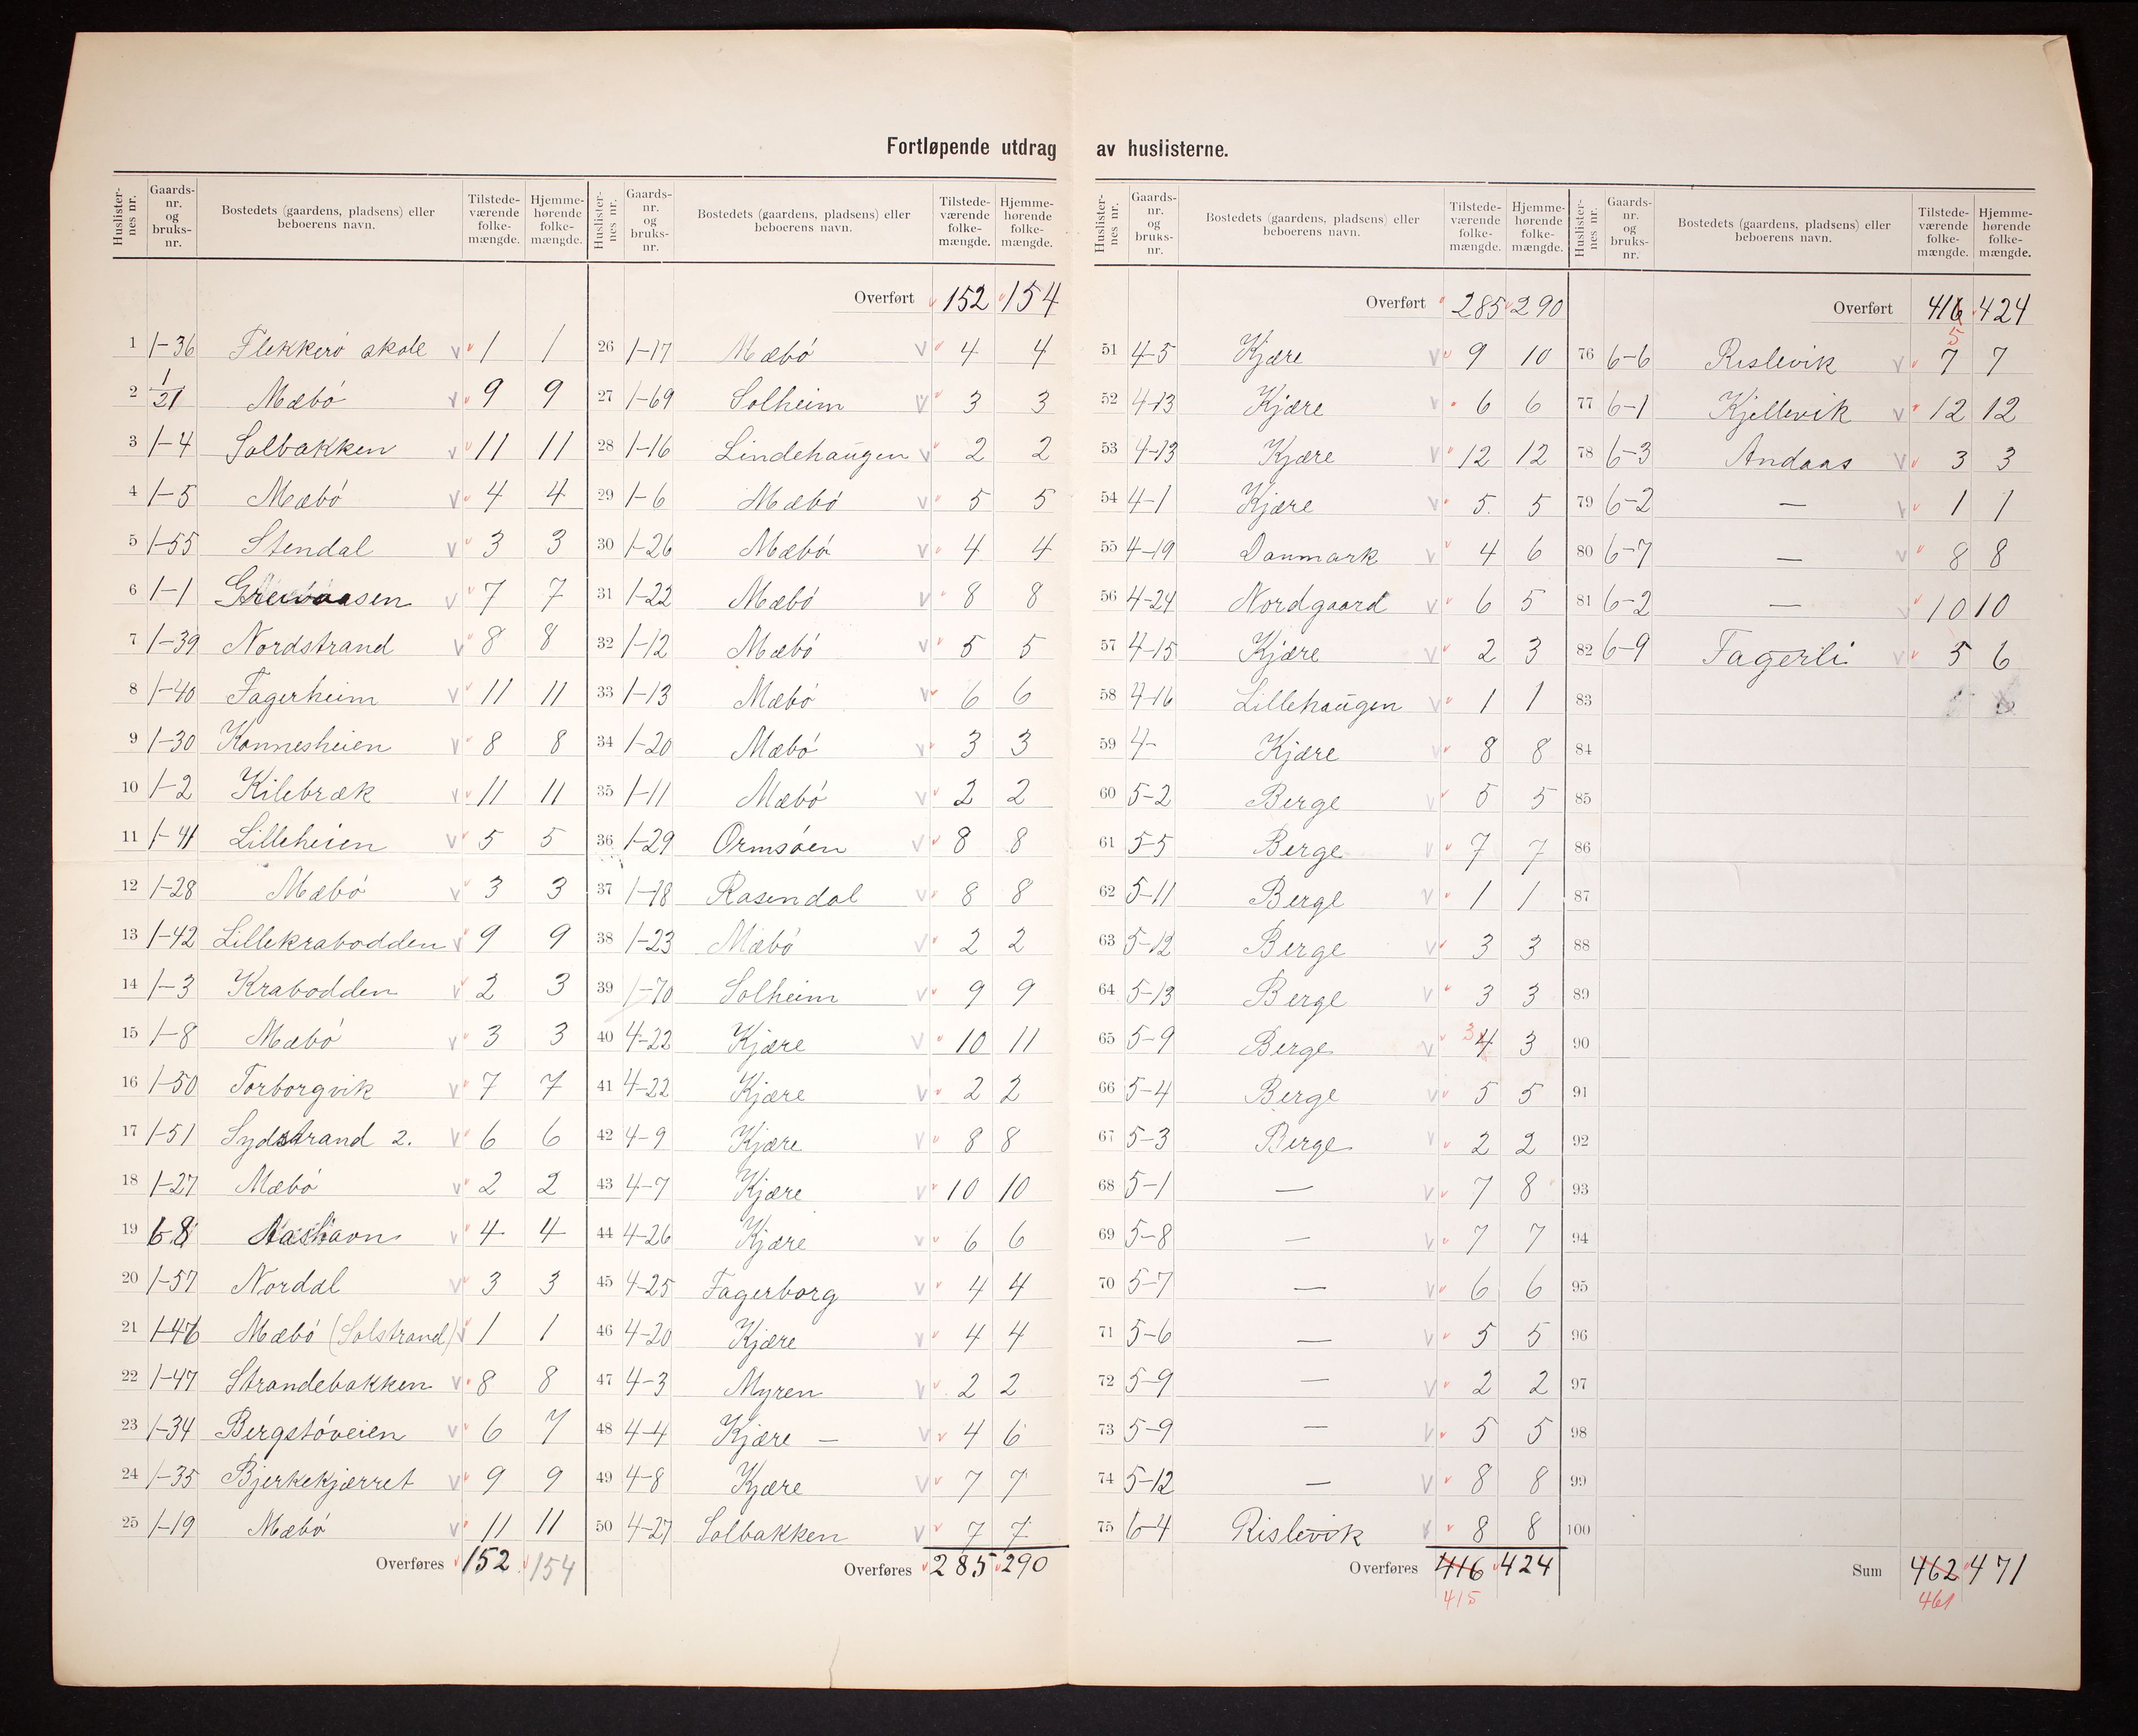 Fortløpende utdrag av huslisterne.
Huslister-nes nr. Gaards-nr. og bruks-nr. Bostedets (gaardens, pladsens) eller beboerens navn. Tilstede-værende folke-mængde. Hjemme-hørende folke-mængde.
1 1-36 Flekkerö skole 1 1
2 1/21 Mæbö 9 9
3 1-4 Solbakken 11 11
4 1-5 Mæbö 4 4
5 1-55 Stendal 3 3
6 1-1 7 7
7 1-39 Nordstrand 8 8
8 1-40 Fagerheim 11 11
9 1-30 Kannesheien 8 8
10 1-2 Kilebræk 11 11
11 1-41 Lilleheien 5 5
12 1-28 Mæbö 3 3
13 1-42 Lillekrabodden 9 9
14 1-3 Krabodden 2 3
15 1-8 Mæbö 3 3
16 1-50 Torborgvik 7 7
17 1-51 Sydstrand 2. 6 6
18 1-27 Mæbö 2 2
19 6-8 4 4
20 1-57 Nordal 3 3
21 1-46 Mæbö (Solstrand) 1 1
22 1-47 Strandebakken 8 8
23 1-34 Bergstöveien 6 7
24 1-35 Bjerkekjærret 9 9
25 1-19 Mæbö 11 11
Overføres 152 154
Huslister-nes nr. Gaards-nr. og bruks-nr. Bostedets (gaardens, pladsens) eller beboerens navn. Tilstede-værende folke-mængde. Hjemme-hørende folke-mængde.
Overført 152 154
26 1-17 Mæbö 4 4
27 1-69 Solheim 3 3
28 1-16 Lindehaugen 2 2
29 1-6 Mæbö 5 5
30 1-26 Mæbö 4 4
31 1-22 Mæbö 8 8
32 1-12 Mæbö 5 5
33 1-13 Mæbö 6 6
34 1-20 Mæbö 3 3
35 1-11 Mæbö 2 2
36 1-29 Ormsöen 8 8
37 1-18 Rosendal 8 8
38 1-23 Mæbö 2 2
39 1-70 Solheim 9 9
40 4-22 Kjære 10 11
41 4-22 Kjære 2 2
42 4-9 Kjære 8 8
43 4-7 Kjære 10 10
44 4-26 Kjære 6 6
45 4-25 Fagerborg 4 4
46 4-20 Kjære 4 4
47 4-3 Myren 2 2
48 4-4 Kjære — 4 6
49 4-8 Kjære 7 7
50 4-27 Solbakken 7 7
Overføres 285 290
Huslister-nes nr. Gaards-nr. og bruks-nr. Bostedets (gaardens, pladsens) eller beboerens navn. Tilstede-værende folke-mængde. Hjemme-hørende folke-mængde.
Overført 285 290
51 4-5 Kjære 9 10
52 4-13 Kjære 6 6
53 4-13 Kjære 12 12
54 4-1 Kjære 5 5
55 4-19 Danmark 4 6
56 4-24 Nordgaard 6 5
57 4-15 Kjære 2 3
58 4-16 Lillehaugen 1 1
59 4- Kjære 8 8
60 5-2 Berge 5 5
61 5-5 Berge 7 7
62 5-11 Berge 1 1
63 5-12 Berge 3 3
64 5-13 Berge 3 3
65 5-9 Berge 3 4 3
66 5-4 Berge 5 5
67 5-3 Berge 2 2
68 5-1 — 7 8
69 5-8 — 7 7
70 5-7 — 6 6
71 5-6 — 5 5
72 5-9 — 2 2
73 5-9 — 5 5
74 5-12 — 8 8
75 6-4 Rislevik 8 8
Overføres 416 424
415
Huslister-nes nr. Gaards-nr. og bruks-nr. Bostedets (gaardens, pladsens) eller beboerens navn. Tilstede-værende folke-mængde. Hjemme-hørende folke-mængde.
Overført 416 424
5
76 6-6 Rislevik 7 7
77 6-1 Kjellevik 12 12
78 6-3 Andaas 3 3
79 6-2 — 1 1
80 6-7 — 8 8
81 6-2 — 10 10
82 6-9 Fagerli 5 6
83
84
85
86
87
88
89
90
91
92
93
94
95
96
97
98
99
100
Sum 462 471
461